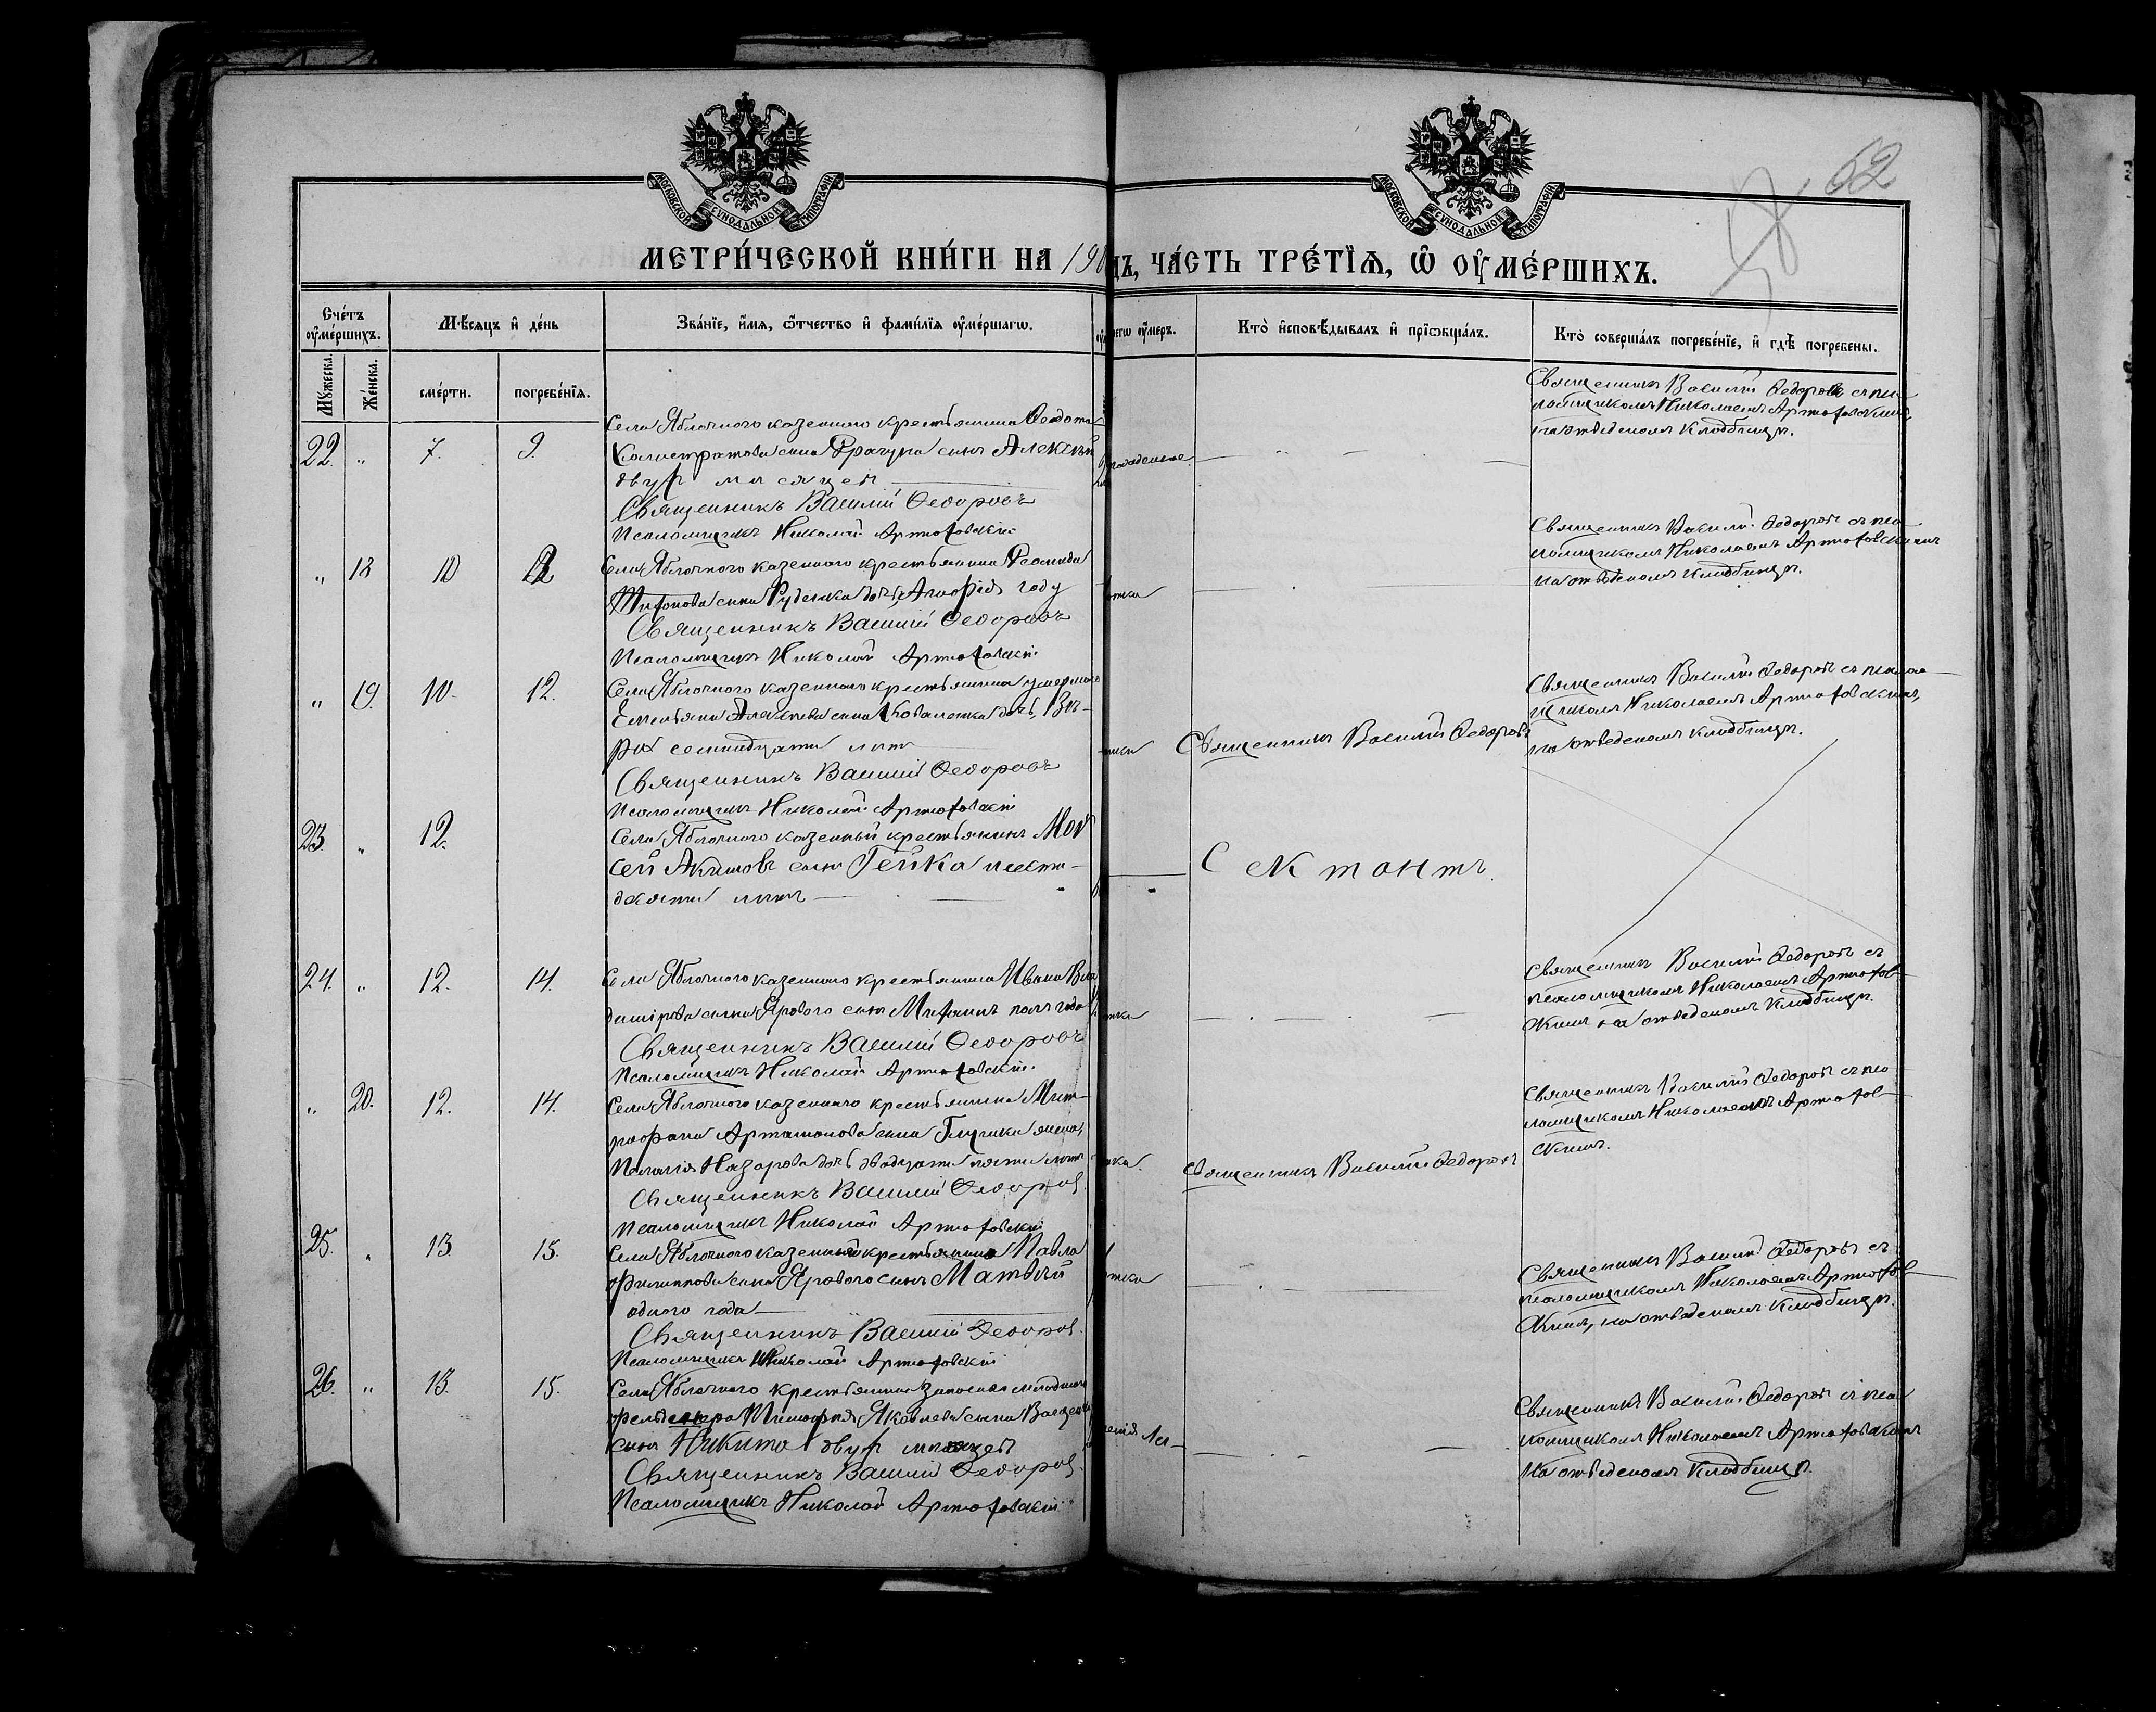 МОСКОВСКОЙ СѴНОДАЛЬНОЙ ТИПОГРАФІИ
МОСКОВСКОЙ СѴНОДАЛЬНОЙ ТИПОГРАФІИ
62
МЕТРИ́ЧЕСКОЙ КНИ́ГИ НА 190
ДЪ, ЧА́СТЬ ТРЕ́ТІѦ, Ѡ ОУ҆МЕ́РШИХЪ.
Сче́тъ оу҆ме́ршихъ.
Мѣ́сяцъ и҆ де́нь
Зва́нїе, и҆́мя, ѻ҆́тчество и҆ фами́лїя оу҆ме́ршагѡ.
чегѡ оу҆́меръ.
Кто̀ и҆сповѣ́дывалъ и҆ прїѡбща́лъ.
Кто̀ соверша́лъ погребе́нїе, и҆ гдѣ̀ погребены.
Му́жеска.
Же́нска.
сме́рти.
погребе́нїя.
22. „ 7. 9.
Села Яблочного казенного крестьянина Феодота
Калистратова сына сынъ Алексѣй
двухъ мѣсяцей
Священникъ Василій Ѳеодоровъ
Псаломщикъ Николай Артюховскій
Священникъ Василій Федоровъ съ пса-
ломщикомъ Николаемъ Артюховскимъ,
на отведеномъ кладбищѣ.
„ 18 10 12
Села Яблочного казенного крестьянина
сына Руденка дочь году
Священникъ Василій Ѳеодоровъ
Псаломщикъ Николай Артюховскій
Священникъ Василій Федоровъ съ пса-
ломщикомъ Николаемъ Артюховскимъ
на отведеномъ кладбищѣ.
„ 19. 10. 12.
Села Яблочного казенного крестьянина умершаго
Емельяна Алексѣева сына Коваленка дочь, Вѣ-
ра семнадцати лѣтъ
Священникъ Василій Ѳеодоровъ
Псаломщикъ Николай Артюховскій
Священникъ Василій Федоровъ
Священникъ Василій Федоровъ съ псалом-
щикомъ Николаемъ Артюховскимъ,
на отведеномъ кладбищѣ.
23. „ 12.
Села Яблочного казенный крестьянинъ Мой
сей Акимовъ сынъ Гейка шести-
десяти лѣтъ
Сектантъ.
24. „ 12. 14.
Села Яблочного казенного крестьянина Ивана Вла
димірова сына Ярового сынъ Митрофанъ полъ года
Священникъ Василій Ѳеодоровъ
Псаломщикъ Николай Артюховскій.
Священникъ Василій Федоровъ съ
псаломщикомъ Николаемъ Артюхов-
скимъ на отведеномъ кладбищѣ.
„ 20. 12. 14.
Села Яблочного казенного крестьянина Мит-
рофана Артамонова сына жена,
Назарова дочь двадцати пяти лѣтъ
Священникъ Василій Ѳеодоров.
Псаломщикъ Николай Артюховскій
Священникъ Василій Федоровъ
Священникъ Василій Федоровъ съ пса
ломщикомъ Николаемъ Артюхов-
скимъ.
25. „ 13. 15.
Села Яблочного казенного крестьянина Павла
Филиппова сына Ярового сынъ Матвѣй
одного года
Священникъ Василій Ѳеодоров.
Псаломщикъ Николай Артюховскій
Священникъ Василій Федоровъ съ
псаломщикомъ Николаемъ Артюхов-
скимъ, на отведеномъ кладбищѣ.
26. „ 13. 15.
Села Яблочного крестьянина запаснаго младшаго
фельдшера Тимофея Яковлева сына
сынъ Никита двухъ мѣсяцевъ
Священникъ Василій Ѳеодоров.
Псаломщикъ Николай Артюховскій
Священникъ Василій Федоровъ съ пса
ломщикомъ Николаемъ Артюховскимъ
на отведеномъ кладбищѣ.